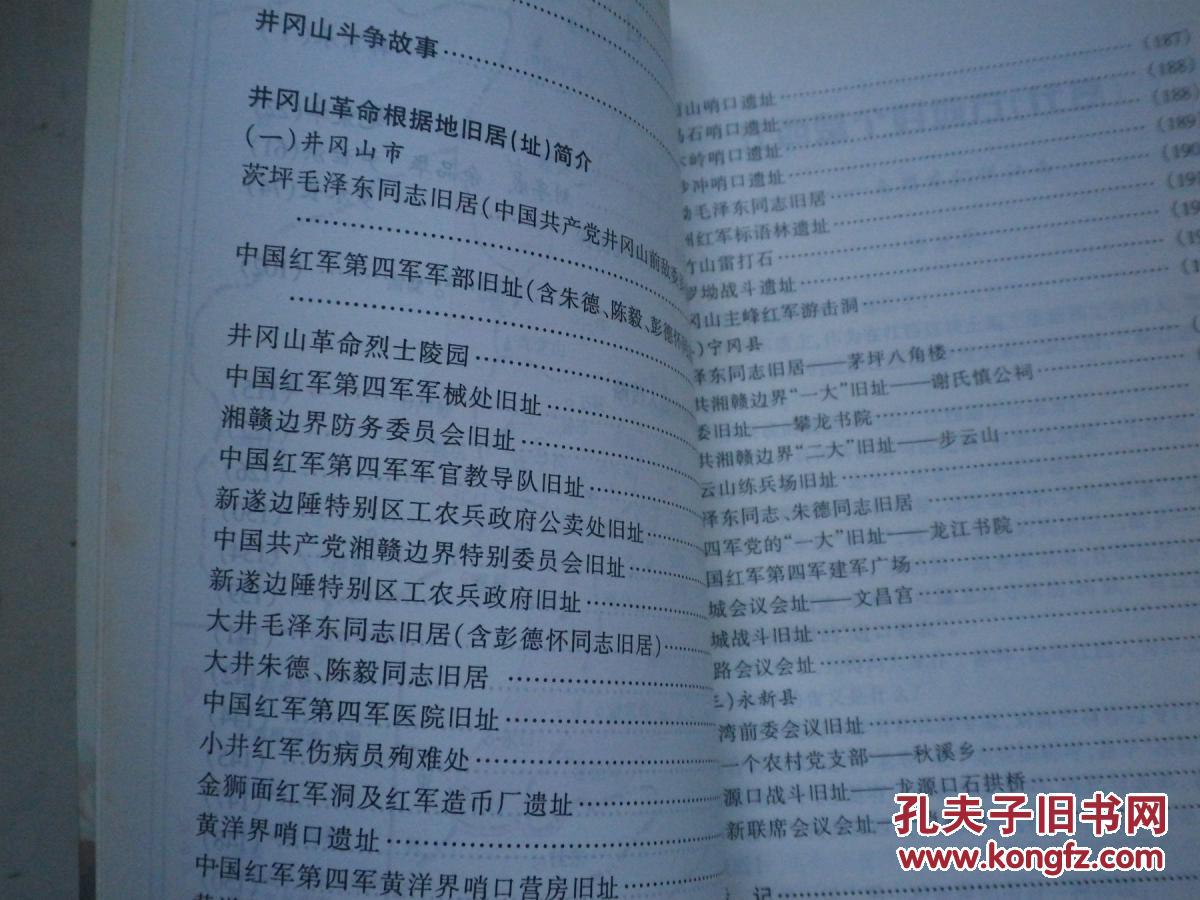 井冈山斗争故事
井冈山革命根据地旧居(址)简介
(一)井冈山市
茨坪毛泽东同志旧居(中国共产党井冈山前敌委
中国红军第四军军部旧址(含朱德、陈毅、彭德怀
井冈山革命烈士陵园
中国红军第四军军械处旧址
湘赣边界防务委员会旧址
中国红军第四军军官教导队旧址
新遂边陲特别区工农兵政府公卖处旧址
中国共产党湘赣边界特别委员会旧址
新遂边陲特别区工农兵政府旧址
大井毛泽东同志旧居(含彭德怀同志旧居)
大井朱德、陈毅同志旧居
中国红军第四军医院旧址
小井红军伤病员殉难处
金狮面红军洞及红军造币厂遗址
黄洋界哨口遗址
中国红军第四军黄洋界哨口营房旧址
(187)
山哨口遗址 (188)
石哨口遗址 (188)
岭哨口遗址 (189
冲哨口遗址 (190
毛泽东同志旧居
红军标语林遗址
竹山雷打石
罗坳战斗遗址
冈山主峰红军游击洞
)宁冈县
泽东同志旧居——茅坪八角楼
共湘赣边界“一大”旧址——谢氏慎公祠
委旧址——攀龙书院
共湘赣边界“二大”旧址——步云山
云山练兵场旧址
泽东同志、朱德同志旧居
四军党的“一大”旧址——龙江书院
国红军第四军建军广场
城会议会址——文昌宫
城战斗旧址
路会议会址
三)永新县
湾前委会议旧址
一个农村党支部——秋溪乡
源口战斗旧址——龙源口石拱桥
新联席会议会址
记
孔夫子旧书网
www.kongfz.com